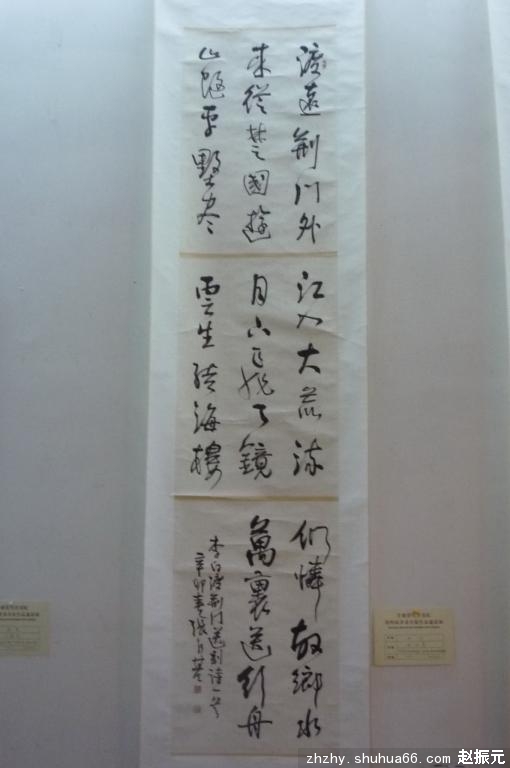 渡遠荆门外
来從楚國遊
山隨平野尽
江入大荒流
月下飛天鏡
雲生结海楼
仍憐故鄉水
萬裏送行舟
李白渡荆门送别诗一首
辛卯春張自
zhzhy.shuhua66.com 赵振元